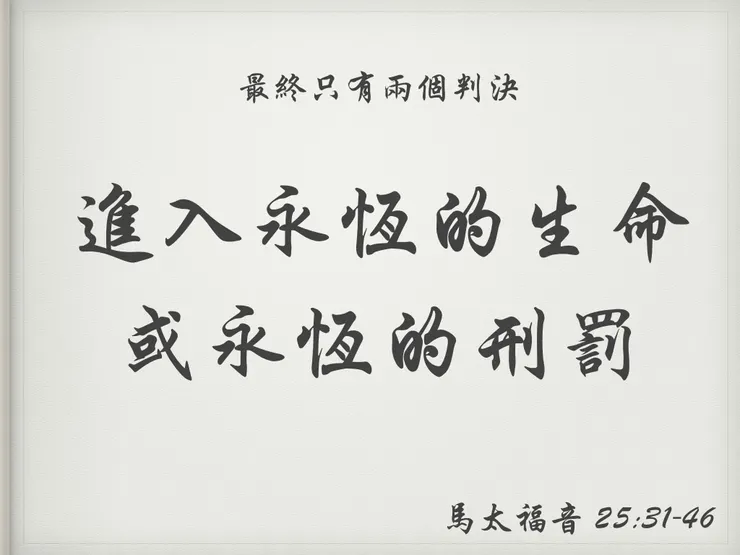 最終只有兩個判決
進入永恆的生命
或永恆的刑罰
馬太福音 25:31-46